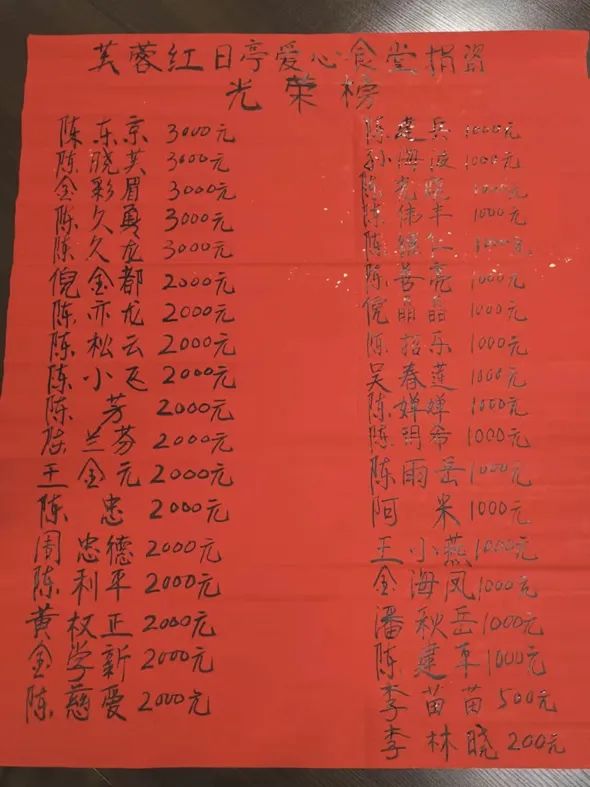 芙蓉红日亭爱心食堂捐资
光荣榜
陈东京 3000元
陈晓芙 3000元
金彩眉 3000元
陈久勇 3000元
陈久龙 3000元
倪金都 2000元
陈亦龙 2000元
陈松云 2000元
陈小飞 2000元
陈芳 2000元
陈兰芬 2000元
王金元 2000元
陈忠 2000元
周忠德 2000元
陈利平 2000元
黄权正 2000元
金学新 2000元
陈慈爱 2000元
陈建兵 1000元
孙海波 1000元
陈克晓 1000元
陈伟丰 1000元
陈继仁 1000元
陈善亮 1000元
倪晶晶 1000元
陈招乐 1000元
吴春莲 1000元
陈婵婵 1000元
陈玥希 1000元
陈雨岳 1000元
阿米 1000元
王小燕 1000元
金海凤 1000元
潘秋岳 1000元
陈建军 1000元
李苗苗 500元
李林晓 200元